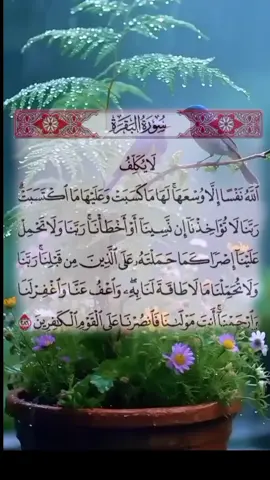 سُورَةُ البَقَرَةِ
لَا يُكَلِّفُ
ٱللَّهُ نَفْسًا إِلَّا وُسْعَهَا لَهَا مَا كَسَبَتْ وَعَلَيْهَا مَا ٱكْتَسَبَتْ
رَبَّنَا لَا تُؤَاخِذْنَا إِن نَّسِينَا أَوْ أَخْطَأْنَا رَبَّنَا وَلَا تَحْمِلْ
عَلَيْنَا إِصْرًا كَمَا حَمَلْتَهُۥ عَلَى ٱلَّذِينَ مِن قَبْلِنَا رَبَّنَا
وَلَا تُحَمِّلْنَا مَا لَا طَاقَةَ لَنَا بِهِۦ وَٱعْفُ عَنَّا وَٱغْفِرْ لَنَا
وَٱرْحَمْنَا أَنتَ مَوْلَىٰنَا فَٱنصُرْنَا عَلَى ٱلْقَوْمِ ٱلْكَٰفِرِينَ ٢٨٦